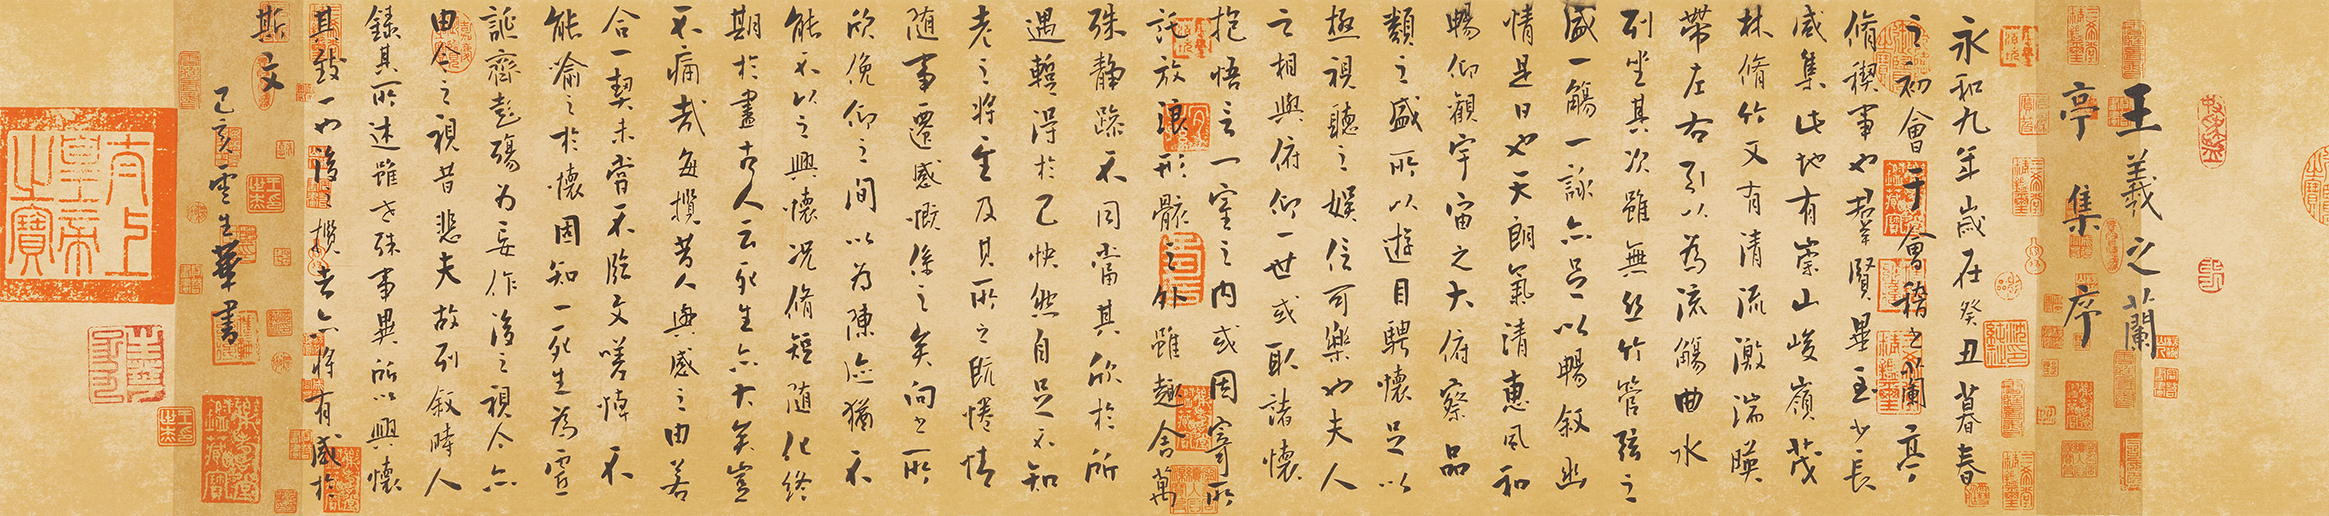 王羲之蘭
亭集序
永和九年歲在癸丑暮春
之初會于會稽山陰蘭亭
脩稧事也羣賢畢至少長
咸集此地有崇山峻嶺茂
林脩竹又有清流激湍暎
帶左右引以為流觴曲水
列坐其次雖無絲竹管弦之
盛一觴一詠亦足以暢敘幽
情是日也天朗氣清惠風和
暢仰觀宇宙之大俯察品
類之盛所以遊目騁懷足以
極視聽之娛信可樂也夫人
之相與俯仰一世或取諸懷
抱悟言一室之內或因寄所
託放浪形骸之外雖趣舍萬
殊靜躁不同當其欣於所
遇暫得於己快然自足不知
老之將至及其所之既惓情
隨事遷感慨係之矣向之所
欣俛仰之間以為陳迹猶不
能不以之興懷況脩短隨化終
期於盡古人云死生亦大矣豈
不痛哉每攬昔人興感之由若
合一契未嘗不臨文嗟悼不
能喻之於懷固知一死生為虛
誕齊彭殤為妄作後之視今亦
由今之視昔悲夫故列敘時人
錄其所述雖世殊事異所以興懷
其致一也後之攬者亦將有感於
斯文
己亥雲生華書
太上皇帝之寶